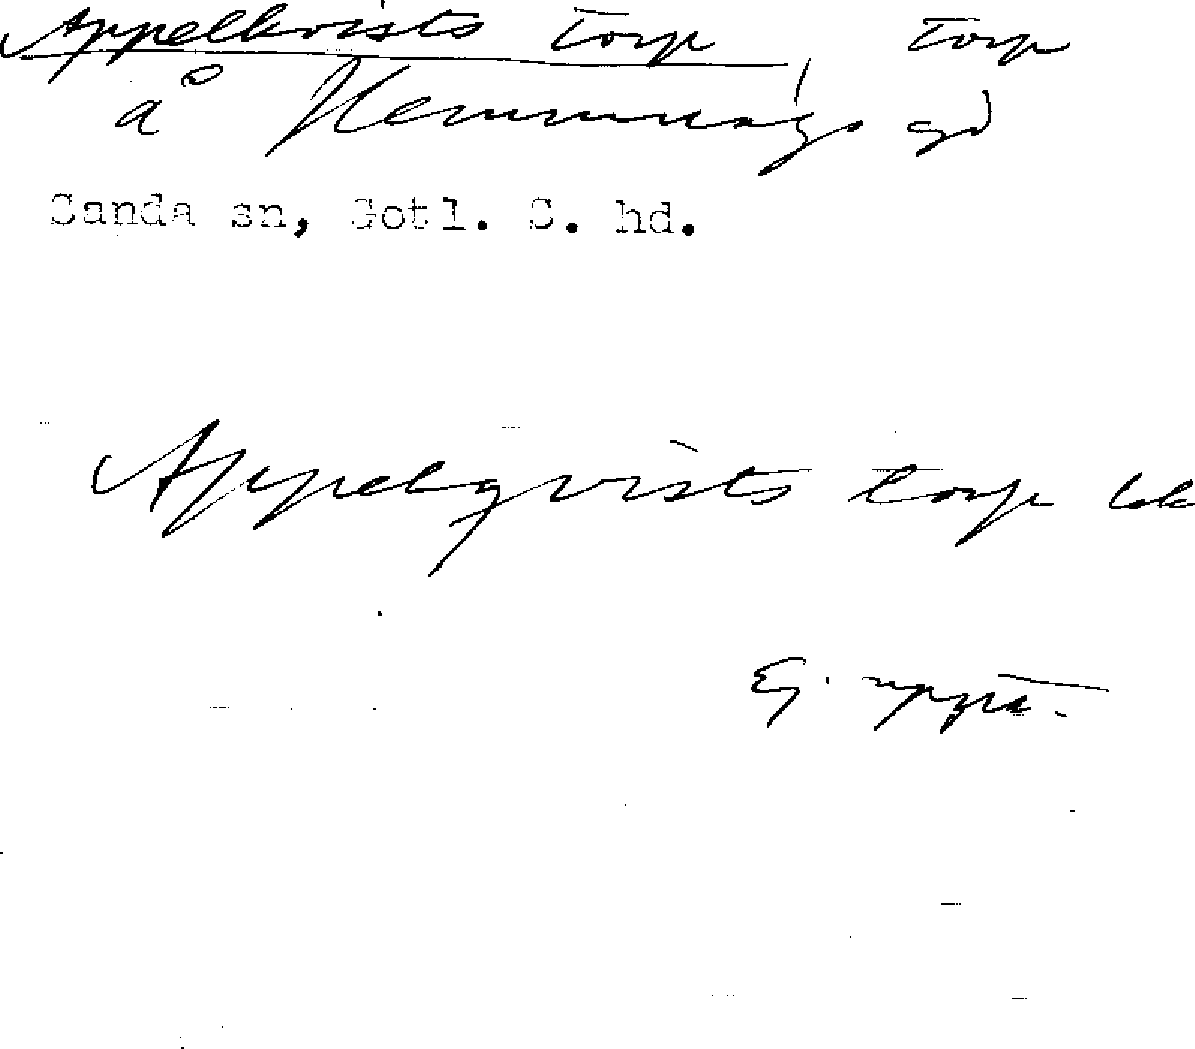 Appelkvists torp torp
å Hemmungs gd
Sanda sn, Gotl. S. hd.
Appelqvists torp
Ej